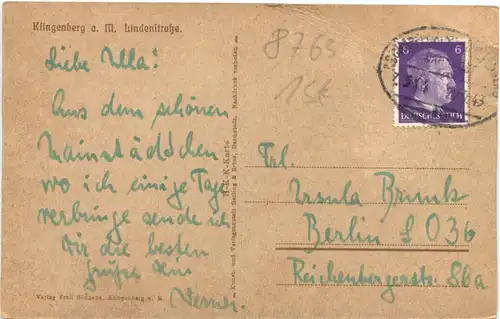 Klingenberg a. M. Lindenstraße.
Liebe Ulla!
Aus dem schönen
Mainstädtchen
wo ich einige Tage
verbringe sende ich
Dir die besten
Grüße Dein
Werner.
Verlag Emil
Klingenberg a. M.
H-K-K-Karte
Kunst- und Verlagsanstalt
Darmstadt. Nachdruck verboten.
8765
15€
6 6
DEUTSCHES REICH
43
Frl.
Ursula Brunk
Berlin S O 36
Reichenbergerstr. 86a